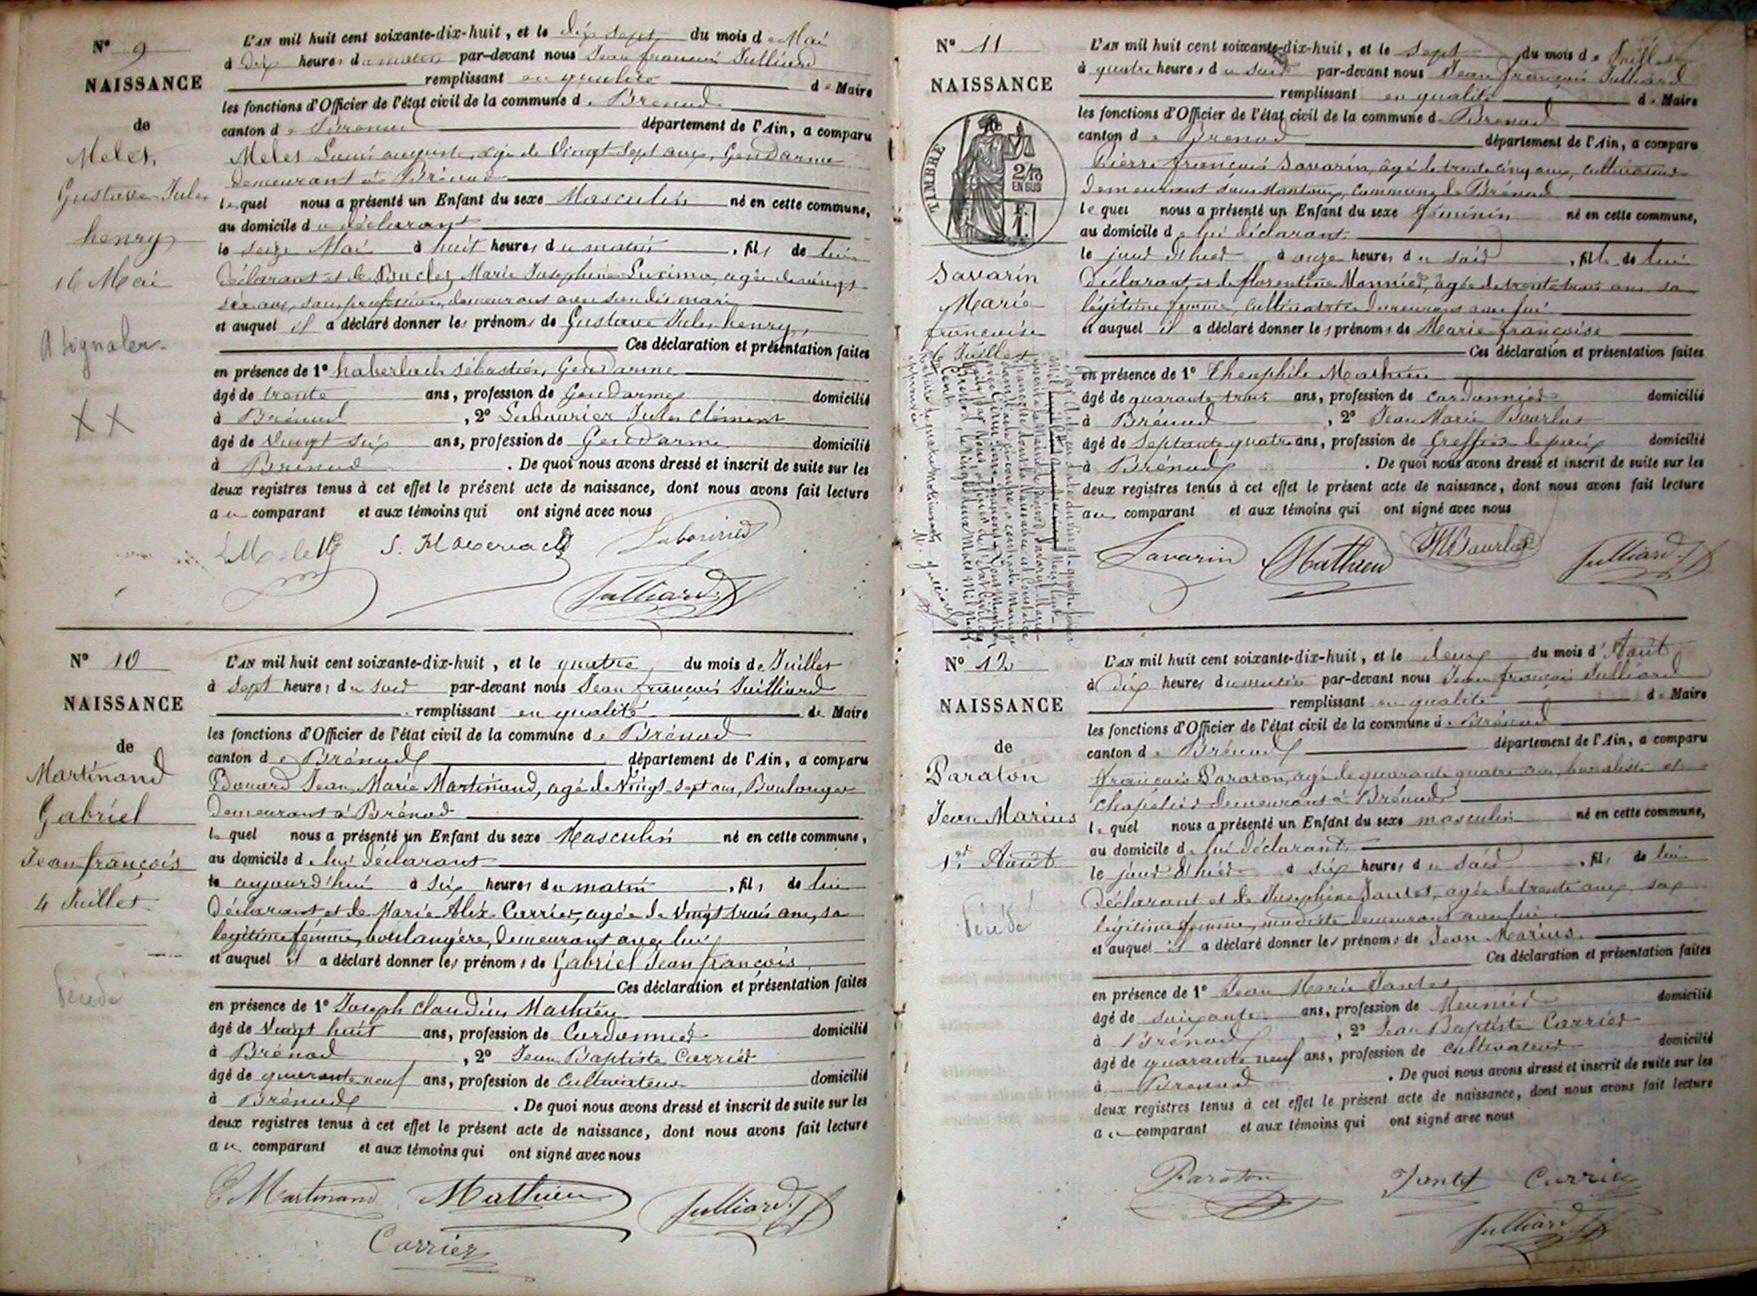 N° 9
NAISSANCE
de
Melet,
Gustave Jules
henry
16 Mai
A signaler.
XX
L'AN mil huit cent soixante-dix-huit, et le dix sept du mois de Mai
à dix heures du matin par-devant nous Jean françois Julliard
remplissant en qualité de Maire
les fonctions d'Officier de l'état civil de la commune de Brénod
canton de Brénod département de l'Ain, a comparu
Melet Louis auguste, âgé de Vingt Sept ans, Gendarme
demeurant à Brénod
lequel nous a présenté un Enfant du sexe Masculin né en cette commune,
au domicile du déclarant
le seize Mai à huit heures du matin, fils de lui
déclarant et de Marie Josephine agée de vingt
six ans, sans profession, demeurant avec son dit mari
et auquel il a déclaré donner les prénoms de Gustave Jules henry,
Ces déclaration et présentation faites
en présence de 1° haberlach sébastien, Gendarme
âgé de trente ans, profession de Gendarme domicilié
à Brénod, 2° Labourier Jules Clément
âgé de vingt six ans, profession de Gendarme domicilié
à Brénod. De quoi nous avons dressé et inscrit de suite sur les
deux registres tenus à cet effet le présent acte de naissance, dont nous avons fait lecture
au comparant et aux témoins qui ont signé avec nous
Labourier
Julliard
N° 10
NAISSANCE
de
Martinand
Gabriel
Jean françois
4 Juillet
L'AN mil huit cent soixante-dix-huit, et le quatre du mois de Juillet
à sept heures du soir par-devant nous Jean françois Julliard
remplissant en qualité de Maire
les fonctions d'Officier de l'état civil de la commune de Brénod
canton de Brénod département de l'Ain, a comparu
Edouard Jean Marie Martinand, agé de Vingt-sept ans, Boulanger
demeurant à Brénod
lequel nous a présenté un Enfant du sexe Masculin né en cette commune,
au domicile de lui déclarant
le aujourd'hui à six heures du matin, fils de lui
déclarant et de Marie Alix Carrier, agée de vingt trois ans, sa
legitime femme, boulangère, demeurant avec lui
et auquel il a déclaré donner les prénoms de Gabriel Jean françois
Ces déclaration et présentation faites
en présence de 1° Joseph Claudius Mathieu
âgé de vingt huit ans, profession de Cordonnier domicilié
à Brénod, 2° Jean Baptiste Carrier
âgé de quarante neuf ans, profession de Cultivateur domicilié
à Brénod. De quoi nous avons dressé et inscrit de suite sur les
deux registres tenus à cet effet le présent acte de naissance, dont nous avons fait lecture
au comparant et aux témoins qui ont signé avec nous
E Martinand Mathieu Julliard
Carrier
N° 11
NAISSANCE
TIMBRE
2/10
EN SUS
F.
1.
Savarin
Marie
françoise
6 Juillet
L'AN mil huit cent soixante-dix-huit, et le sept du mois de Juillet
à quatre heures du soir par-devant nous Jean françois Julliard
remplissant en qualité de Maire
les fonctions d'Officier de l'état civil de la commune de Brénod
canton de Brénod département de l'Ain, a comparu
Pierre françois Savarin, âgé de trente cinq ans, cultivateur
demeurant commune de Brénod
lequel nous a présenté un Enfant du sexe féminin né en cette commune,
au domicile de lui déclarant
le jour d'hier à onze heures du soir, fille de lui
déclarant et de florentine Monnier, âgée de trente trois ans, sa
légitime femme, cultivatrice demeurant avec lui
et auquel il a déclaré donner les prénoms de Marie françoise
Ces déclaration et présentation faites
en présence de 1° Théophile Mathieu
âgé de quarante trois ans, profession de cordonnier domicilié
à Brénod, 2° Jean Marie Bourlos
âgé de septante quatre ans, profession de Greffier de paix domicilié
à Brénod. De quoi nous avons dressé et inscrit de suite sur les
deux registres tenus à cet effet le présent acte de naissance, dont nous avons fait lecture
au comparant et aux témoins qui ont signé avec nous
Savarin Mathieu Julliard
N° 12
NAISSANCE
de
Paraton
Jean Marius
1er Août
L'AN mil huit cent soixante-dix-huit, et le deux du mois d'Août
à dix heures du matin par-devant nous Jean françois Julliard
remplissant en qualité de Maire
les fonctions d'Officier de l'état civil de la commune de Brénod
canton de Brénod département de l'Ain, a comparu
françois Paraton, agé de quarante quatre ans, buraliste et
chapelier demeurant à Brénod
lequel nous a présenté un Enfant du sexe masculin né en cette commune,
au domicile de lui déclarant
le jour d'hier à six heures du soir, fils de lui
déclarant et de Josephine Jantet, agée de trente ans, sa
légitime femme, modiste demeurant avec lui
et auquel il a déclaré donner les prénoms de Jean Marius.
Ces déclaration et présentation faites
en présence de 1° Jean Marie Jantet
âgé de soixante ans, profession de Meunier domicilié
à Brénod, 2° Jean Baptiste Carrier
âgé de quarante neuf ans, profession de cultivateur domicilié
à Brénod. De quoi nous avons dressé et inscrit de suite sur les
deux registres tenus à cet effet le présent acte de naissance, dont nous avons fait lecture
au comparant et aux témoins qui ont signé avec nous
Paraton Jantet Carrier
Julliard